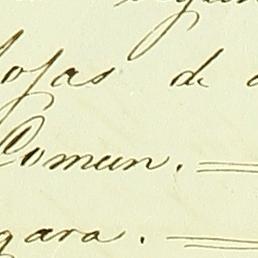 ojas de
Comun. =
gara. =